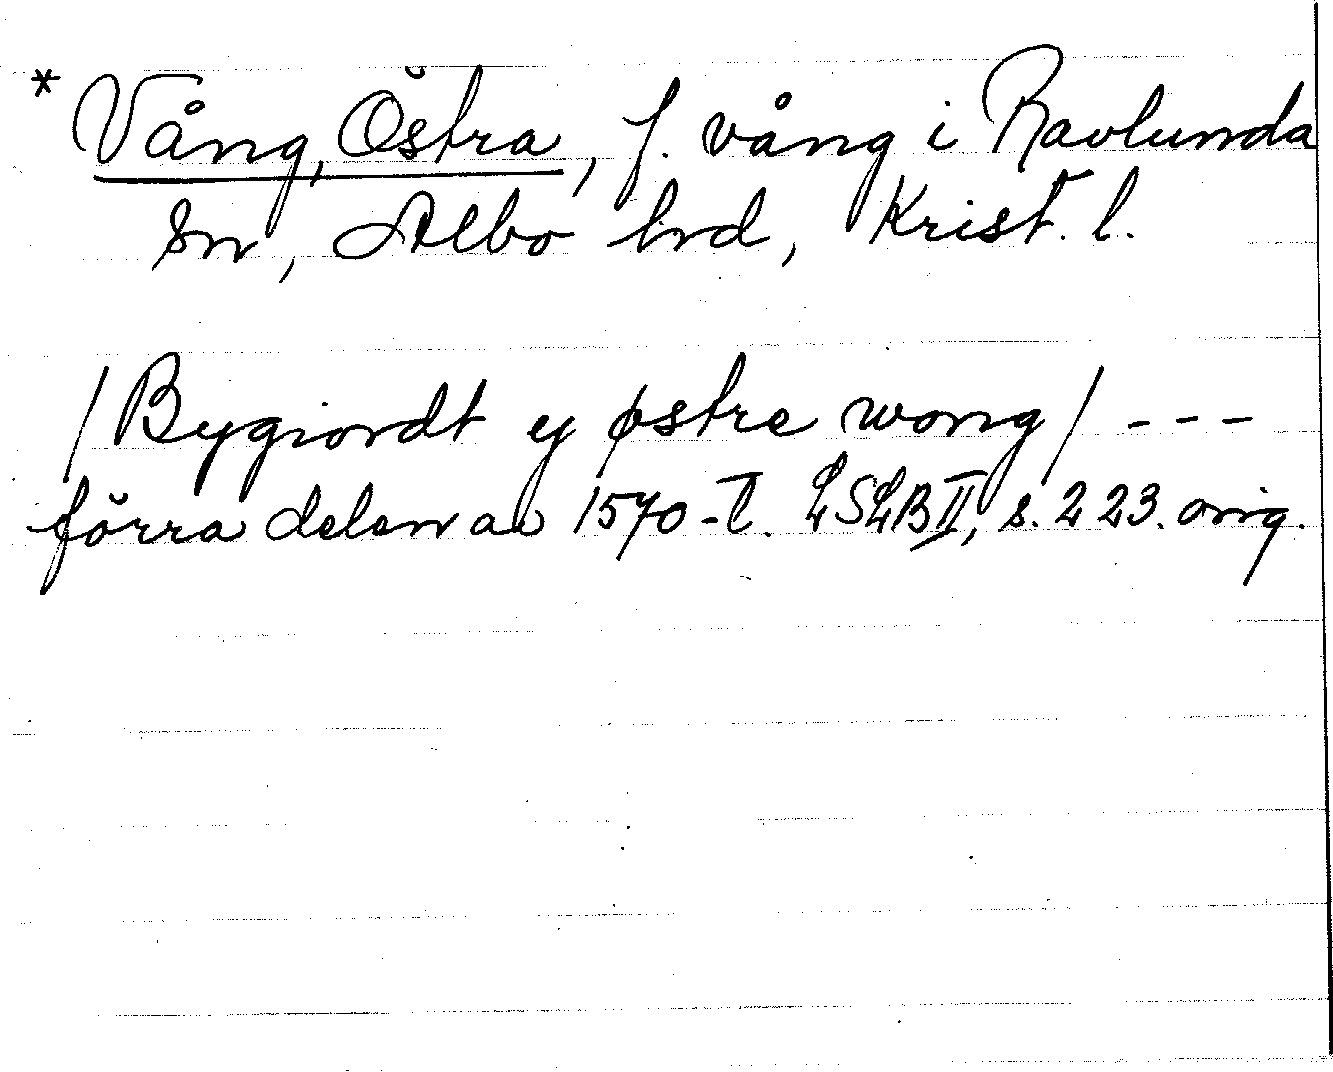 * Vång, Östra, f. vång i Ravlunda
sn, Albo hrd, Krist. l.
/Bygiordt ey østre wong/ ---
förra delen av 1570-t. LSLB II, s. 223. orig.